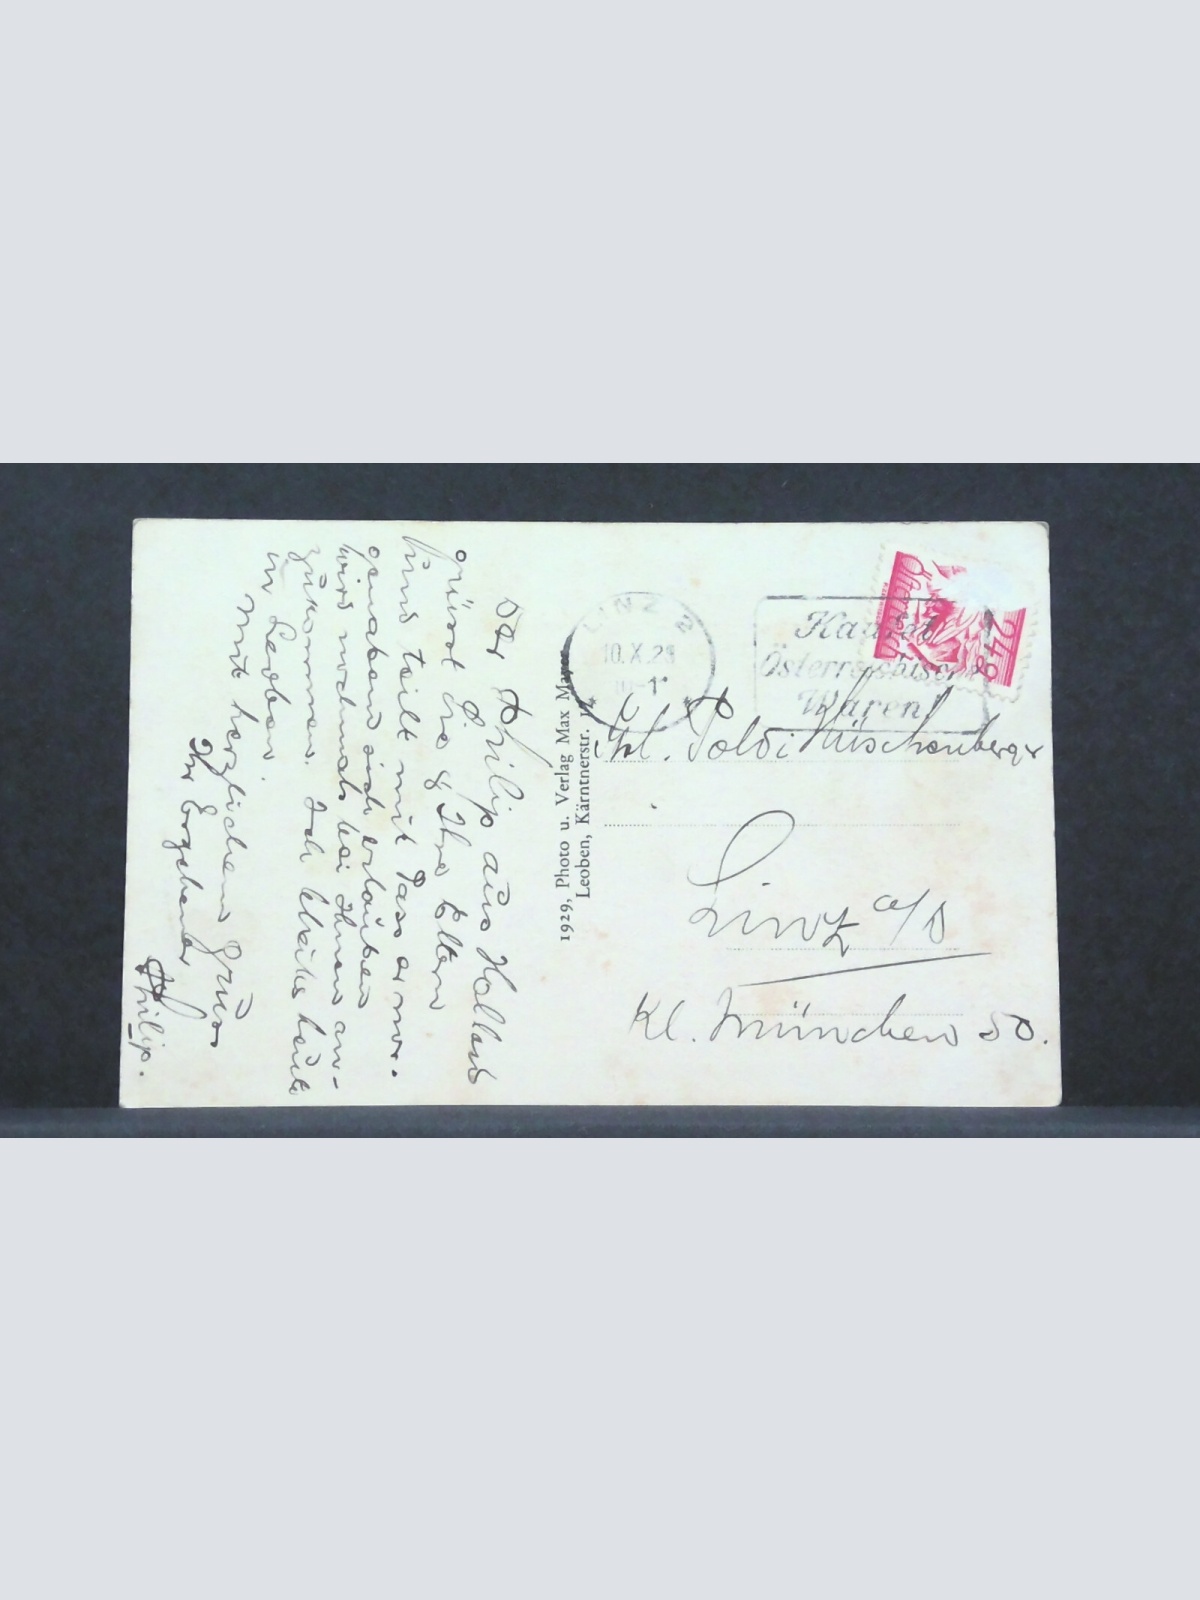 Der Philip aus Holland
grüsst Sie & Ihre Eltern
und teilt mit dass er mor-
gen abend sich erlauben
wird nochmals bei Ihnen an-
zukommen. Ich bleibe heute
in Leoben.
Mit herzlichem Gruss
Ihr Ergebener
Philip.
1929, Photo u. Verlag Max Mayer
Leoben, Kärntnerstr.
LINZ 2
10.X.29
Kauft
Österreichische
Waren!
Österreich
24g
Frl. Poldi
Linz a/D
Kl. München 50.